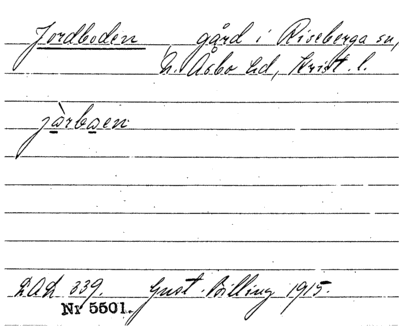 Jordboden , gård i Riseberga sn,
N. Åsbo hd, Krist. l.
jòrboen
DAL 339. Gust. Billing 1915.
Nr 5501.